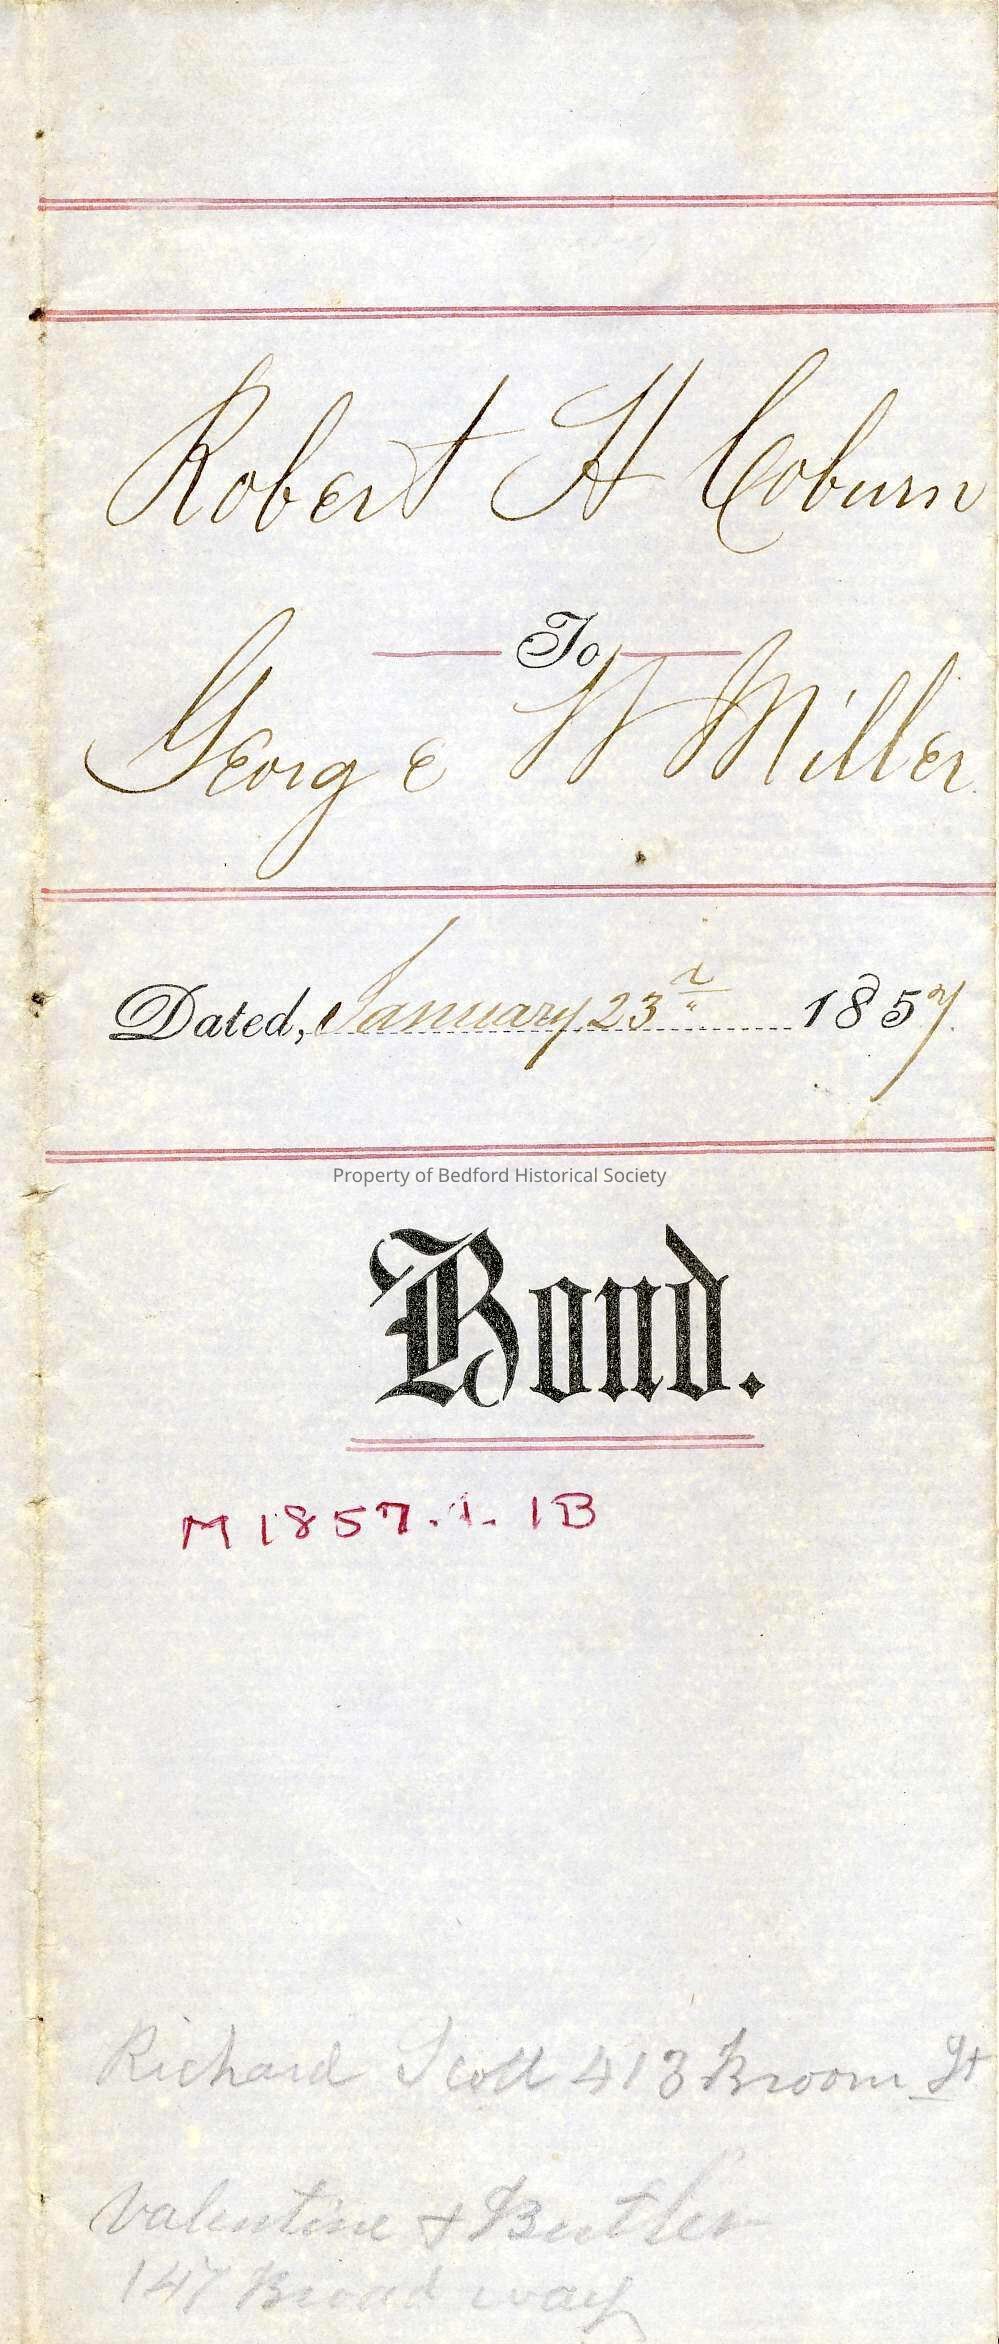 Robert H Coburn
To
George W Miller
Dated, January 23 1857.
Property of Bedford Historical Society
Bond.
M1857.1.1B
Richard Scott 413 Broom St
Valentine & Butler
147 Broadway